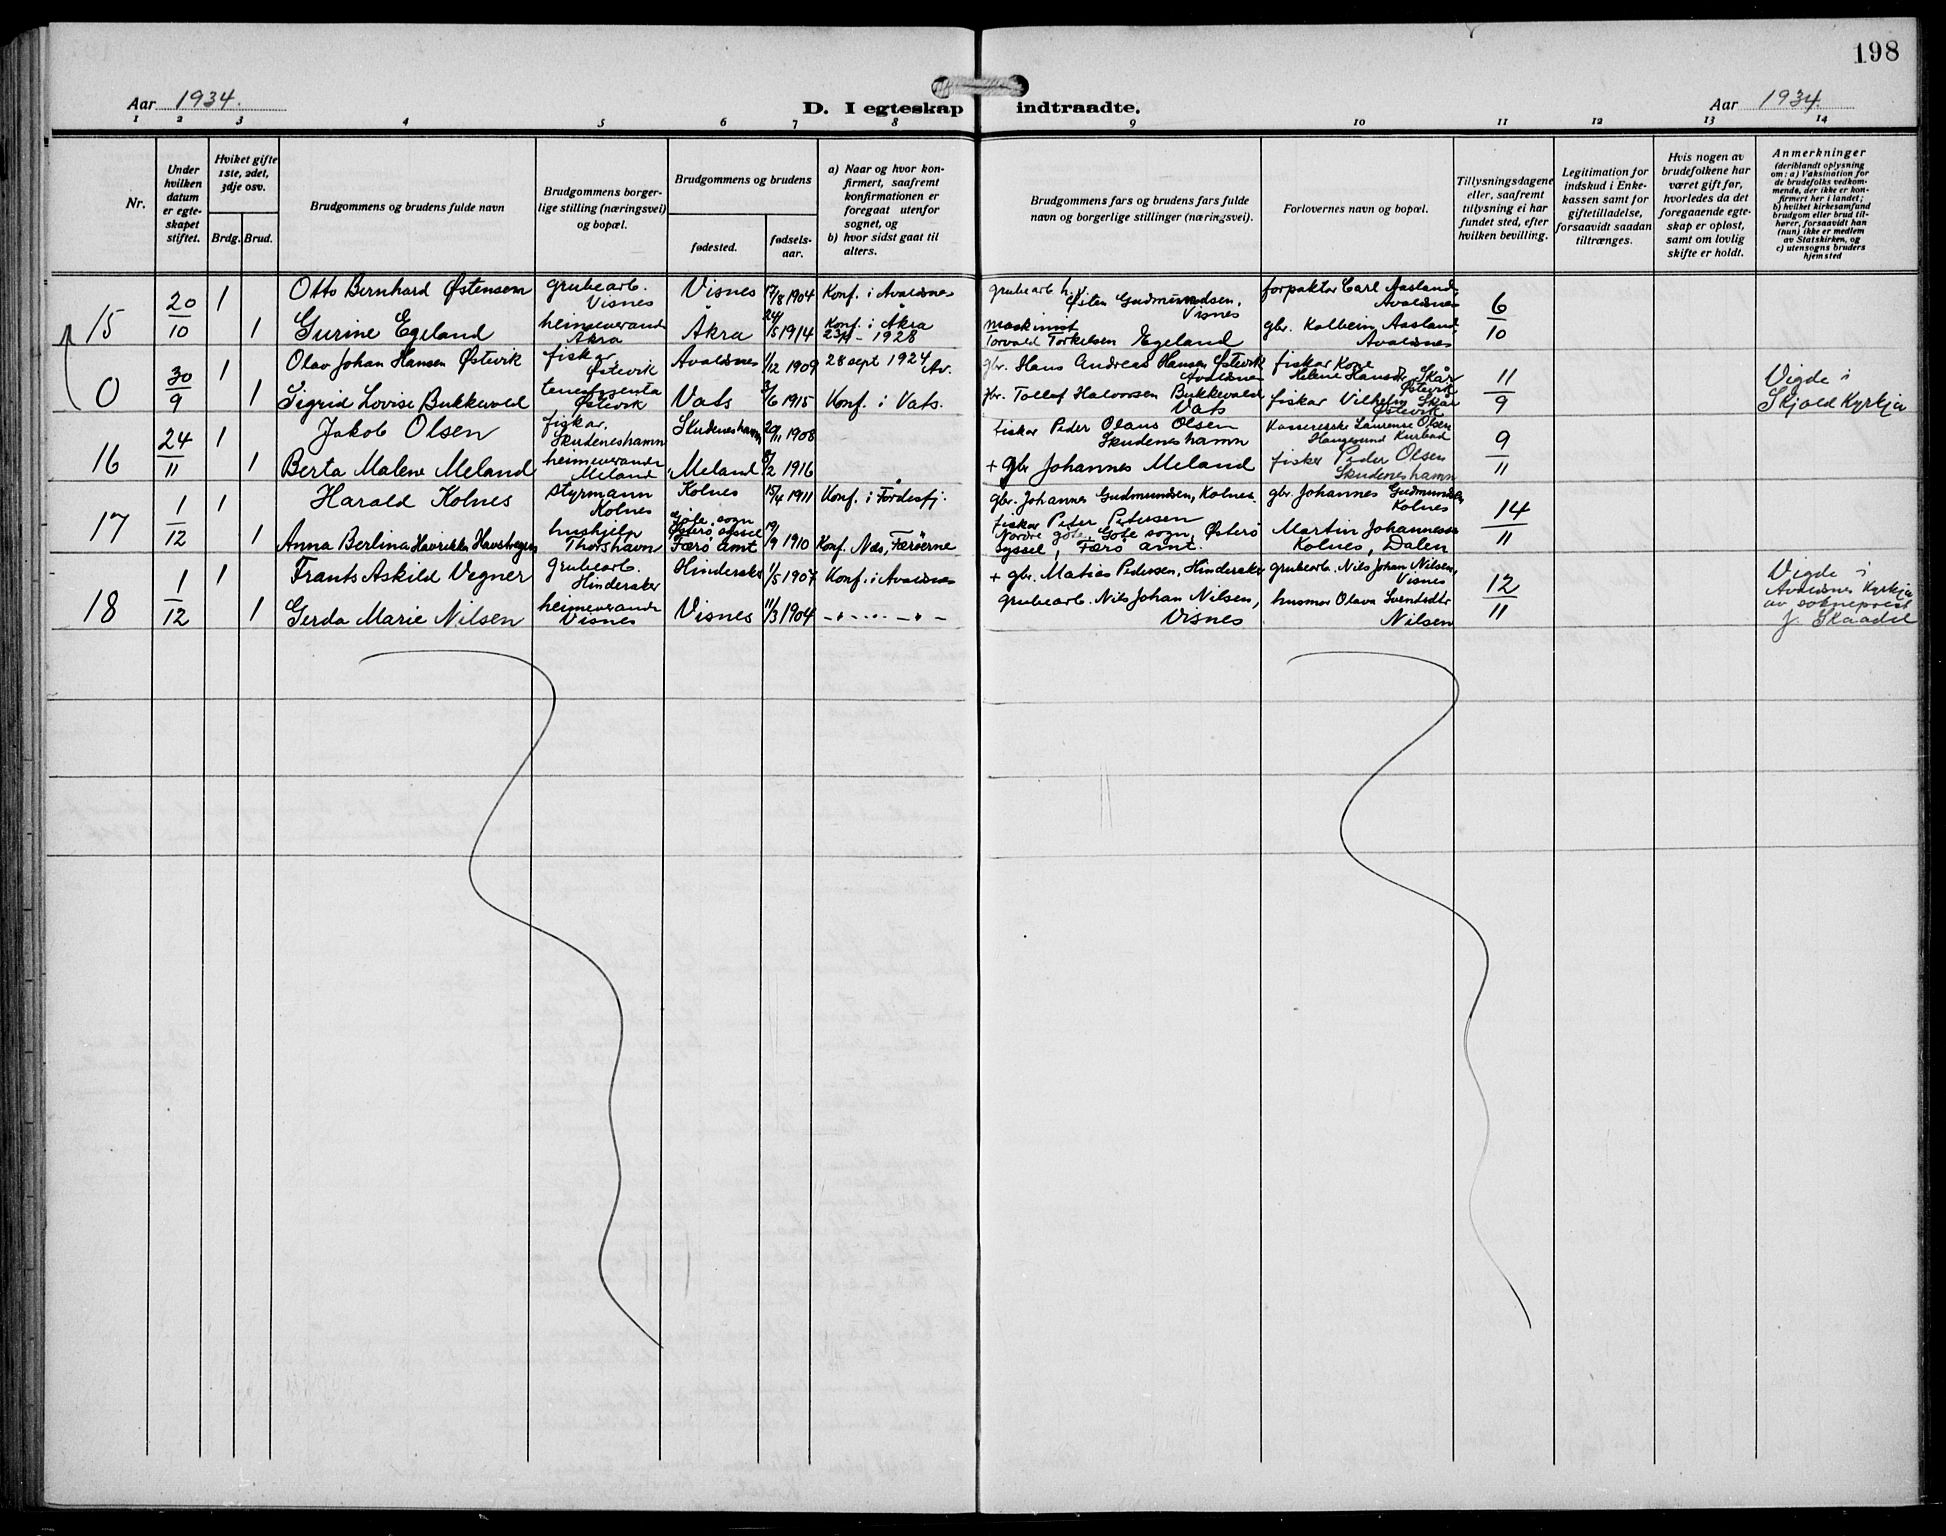 198
Aar 1934.
D. I egteskap indtraadte.
Aar 1934.
1 2 3 4 5 6 7 8 9 10 11 12 13 14
Nr.
Under hvilken datum er egteskapet stiftet.
Hviket gifte 1ste, 2det, 3dje osv.
Brdg. Brud.
Brudgommens og brudens fulde navn
Brudgommens borgerlige stilling (næringsvei) og bopæl.
Brudgommens og brudens
fødested.
fødselsaar.
a) Naar og hvor konfirmert, saafremt konfirmationen er foregaat utenfor sognet, og
b) hvor sidst gaat til alters.
Brudgommens fars og brudens fars fulde navn og borgerlige stillinger (næringsvei).
Forlovernes navn og bopæl.
Tillysningsdagene eller, saafremt tillysning ei har fundet sted, efter hvilken bevilling.
Legitimation for indskud i Enkekassen samt for giftetilladelse, forsaavidt saadan tiltrænges.
Hvis nogen av brudefolkene har været gift før, hvorledes da det foregaaende egteskap er opløst, samt om lovlig skifte er holdt.
Anmerkninger
(deriblandt oplysning om: a) Vaksination for de brudefolks vedkommende, der ikke er konfirmert her i landet; b) hvilket kirkesamfund brudgom eller brud tilhører, forsaavidt han (hun) ikke er medlem av Statskirken, og c) utensogns bruders hjemsted
15 20/10 1 Otto Bernhard Østensen grubearb. Visnes Visnes 17/8 1904 Konf. i Avaldsnes grubearb. h. v. Østen Gudmundsen, Visnes forpaktar Carl Aasland, Avaldsnes 6/10
1 Gurine Egeland heimeverande Åkra Åkra 24/5 1914 Konf. i Åkra 23/9 - 1928 maskinist Torvald Torkelsen Egeland gbr. Kolbein Aasland Avaldsnes
0 30/9 1 Olav Johan Hansen Østevik fiskar, Østevik Avaldsnes 1/12 1909 28 sept 1924 Av. gbr. Hans Andreas Hansen Østevik Avaldsnes fiskar Kone Helene Hansdr. Skår Østevik 11/9 Vigde i
1 Sigrid Lovise Bukkevold tenestgjenta Østevik Vats 3/6 1915 Konf. i Vats. gbr. Tollef Halvorsen Bukkevold Vats fiskar Vilhelm Skår Østevik Skjold Kyrkja
16 24/11 1 Jakob Olsen fiskar, Skudeneshamn Skudeneshamn 20/11 1908 fiskar Peder Olaus Olsen Skudeneshamn Laurense Olsen Haugesund Kurbad 9/11
1 Berta Malene Meland heimeverande Meland Meland 8/2 1916 + gbr Johannes Meland fisker Peder Olsen Skudeneshamn
17 1/12 1 Harald Kolnes styrmann Kolnes Kolnes 15/4 1911 Konf. i Førdesfj. gbr. Johannes Gudmundsen, Kolnes. gbr. Johannes Gudmundsen Kolnes 14/11
1 Anna Berlina Havrikka hushjelp Thorshavn Gøte sogn Østerø syssel Færø amt 19/9 1910 Konf. Næs, Færøerne fiskar Peter Petersen Nordre gøte, Gøte sogn, Østerø syssel, Færø amt. Martin Johannessen Kolnes, Dalen
18 1/12 1 Frants Askild Vegner grubearb. Hindersker Hindersker 1/5 1907 Konf. i Avaldsnes + gbr. Matias Pedersen, Hindersker grubearb. Nils Johan Nilsen, Visnes 12/11 Vigde i
1 Gerda Marie Nilsen heimeverande Visnes Visnes 11/3 1904 - " - grubearb. Nils Johan Nilsen, Visnes husmor Olava Svendsdtr Nilsen Avaldsnes Kyrkja av sokneprest J. Skaadel